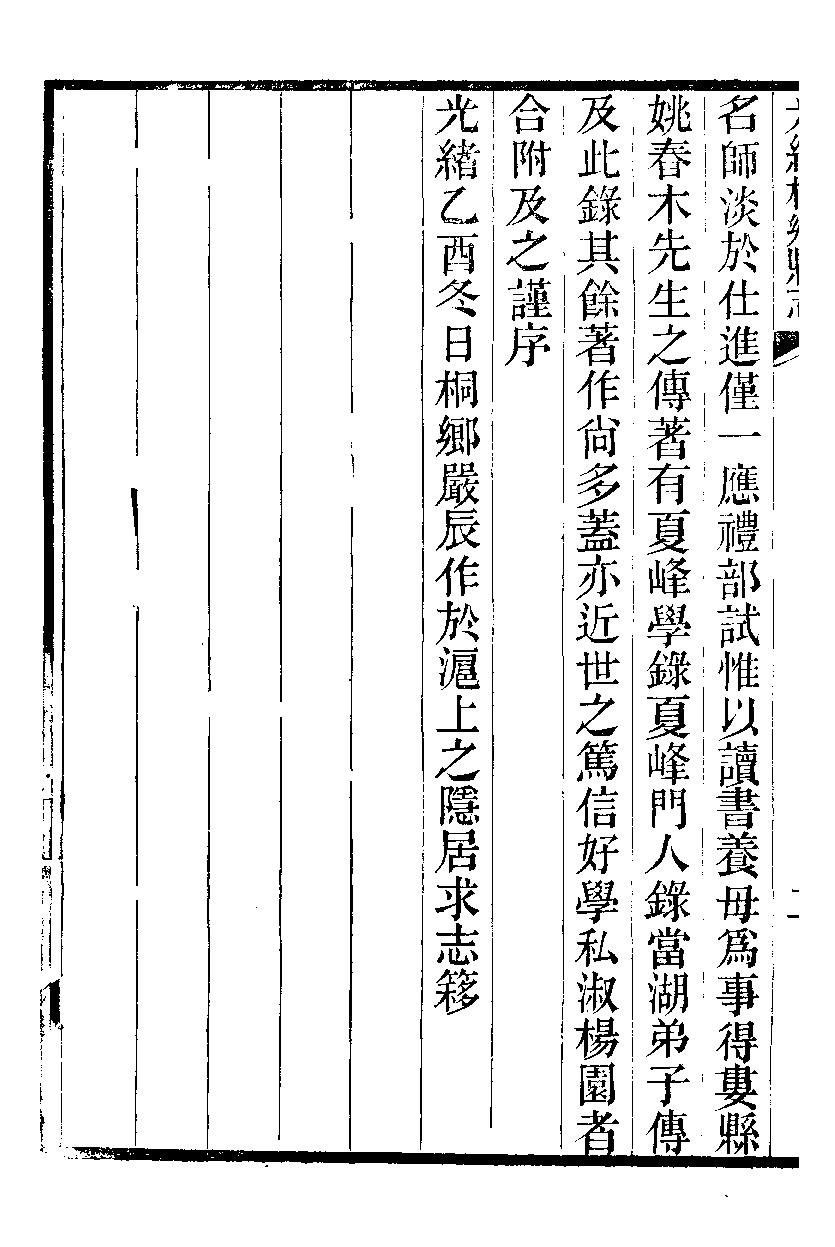 名師淡於仕進僅一應禮部試惟以讀書養母爲事得婁縣
姚春木先生之傳著有夏峰學錄夏峰門人錄當湖弟子傳
及此錄其餘著作尚多蓋亦近世之篤信好學私淑楊園者
合附及之謹序
光緒乙酉冬日桐鄉嚴辰作於滬上之隱居求志簃